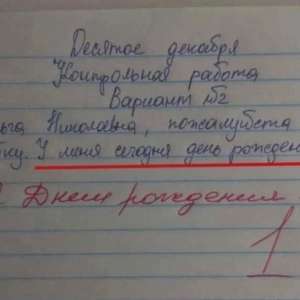 Десятое декабря
Контрольная работа
Вариант №2
ьга Николаевна, пожалуйста
ку. У меня сегодня день рожден
С Днем рождения
1